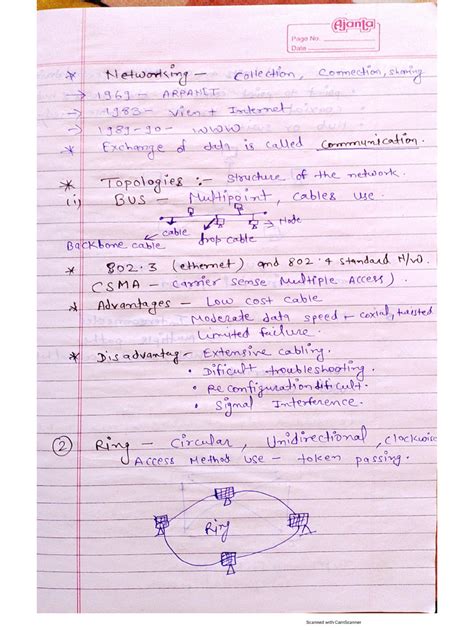 Ajanta
Page No.
Date
* Networking - Collection, Connection, sharing
→ 1969 - ARPANET
→ 1983 - Internet
→ 1989-90 - WWW
* Exchange of data is called communication.
* Topologies :- Structure of the network.
(i) BUS - Multipoint, cables use.
→ Node
cable
Backbone cable drop cable
* 802.3 (ethernet) and 802.4 standard H/w.
CSMA - carrier sense Multiple Access).
* Advantages - Low cost cable
Moderate data speed - coxial, twisted
Limited failure.
* Disadvantag - Extensive cabling.
• Dificult troubleshooting.
• Reconfiguration dificult.
• Signal Interference.
② Ring - Circular, Unidirectional, clockwise
Access Method use - token passing.
Ring
Scanned with CamScanner